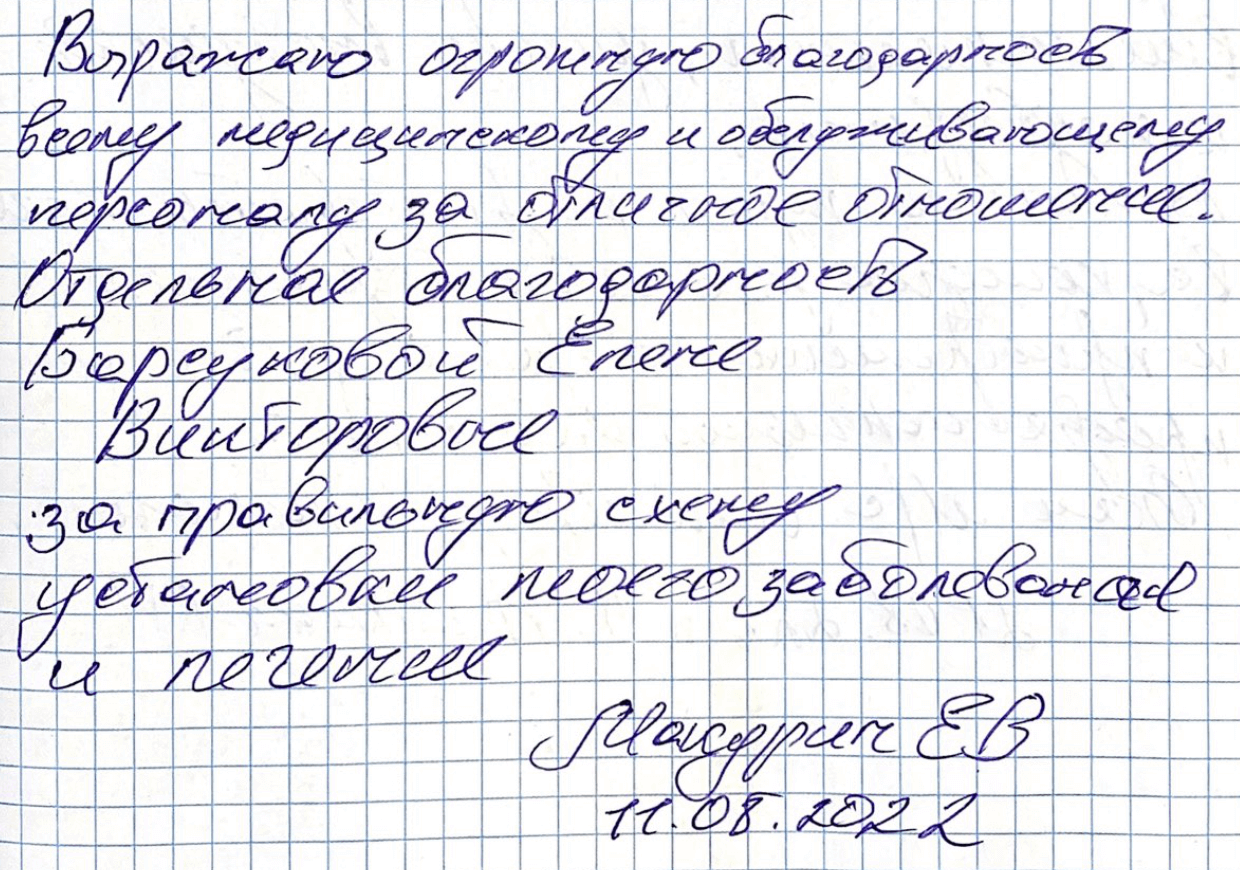 Выражаю огромную благодарность
всему медицинскому и обслуживающему
персоналу за отличное отношение.
Отдельная благодарность
Барсуковой Елене
Викторовне
за правильную схему
установки моего заболевания
и лечение
ЕВ
11.08.2022